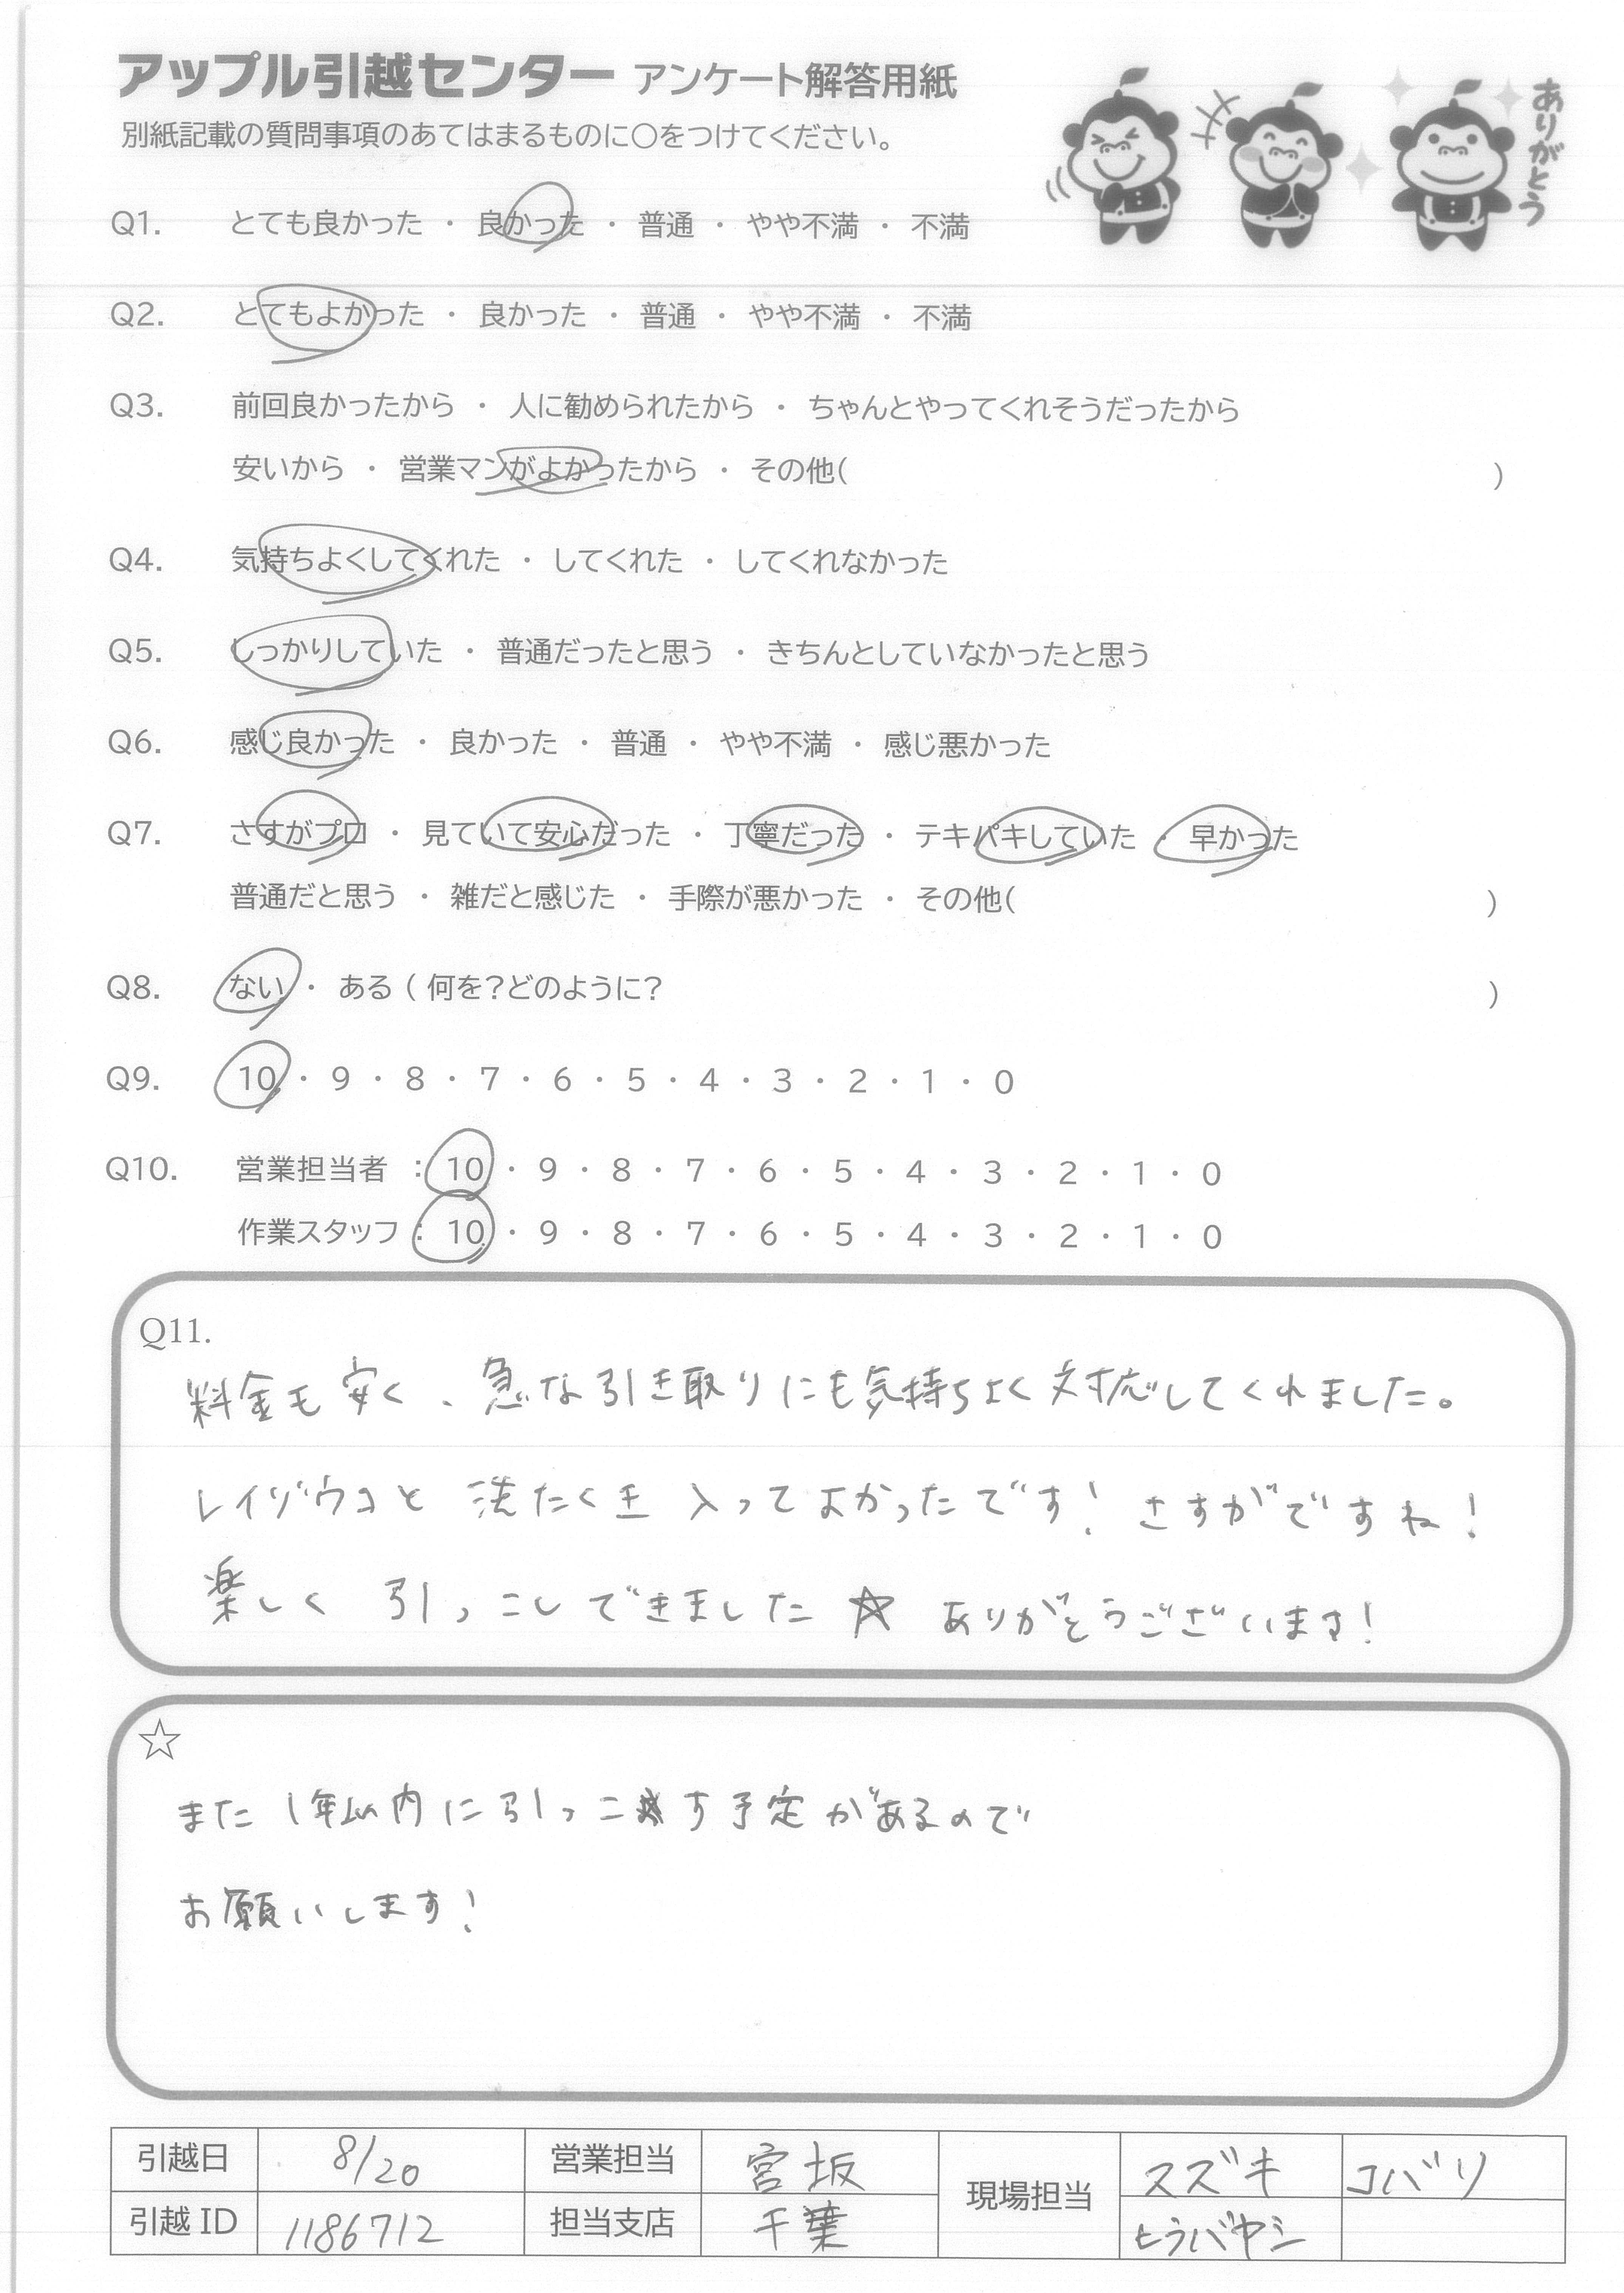 アップル引越センター アンケート解答用紙
ありがとう
別紙記載の質問事項のあてはまるものに〇をつけてください。
Q1. とても良かった ・ 良かった ・ 普通 ・ やや不満 ・ 不満
Q2. とてもよかった ・ 良かった ・ 普通 ・ やや不満 ・ 不満
Q3. 前回良かったから ・ 人に勧められたから ・ ちゃんとやってくれそうだったから
安いから ・ 営業マンがよかったから ・ その他( )
Q4. 気持ちよくしてくれた ・ してくれた ・ してくれなかった
Q5. しっかりしていた ・ 普通だったと思う ・ きちんとしていなかったと思う
Q6. 感じ良かった ・ 良かった ・ 普通 ・ やや不満 ・ 感じ悪かった
Q7. さすがプロ ・ 見ていて安心だった ・ 丁寧だった ・ テキパキしていた ・ 早かった
普通だと思う ・ 雑だと感じた ・ 手際が悪かった ・ その他( )
Q8. ない ・ ある ( 何を?どのように? )
Q9. 10 ・ 9 ・ 8 ・ 7 ・ 6 ・ 5 ・ 4 ・ 3 ・ 2 ・ 1 ・ 0
Q10. 営業担当者 : 10 ・ 9 ・ 8 ・ 7 ・ 6 ・ 5 ・ 4 ・ 3 ・ 2 ・ 1 ・ 0
作業スタッフ : 10 ・ 9 ・ 8 ・ 7 ・ 6 ・ 5 ・ 4 ・ 3 ・ 2 ・ 1 ・ 0
Q11.
料金も安く、急な引き取りにも気持ちよく対応してくれました。
レイゾウコと 洗たくき 入ってよかったです! さすがですね!
楽しく 引っこしできました ☆ ありがとうございます!
☆
また 1年以内に引っこす予定があるので
お願いします!
引越日 8/20 営業担当 宮坂 現場担当 スズキ コバリ
引越 ID 1186712 担当支店 千葉